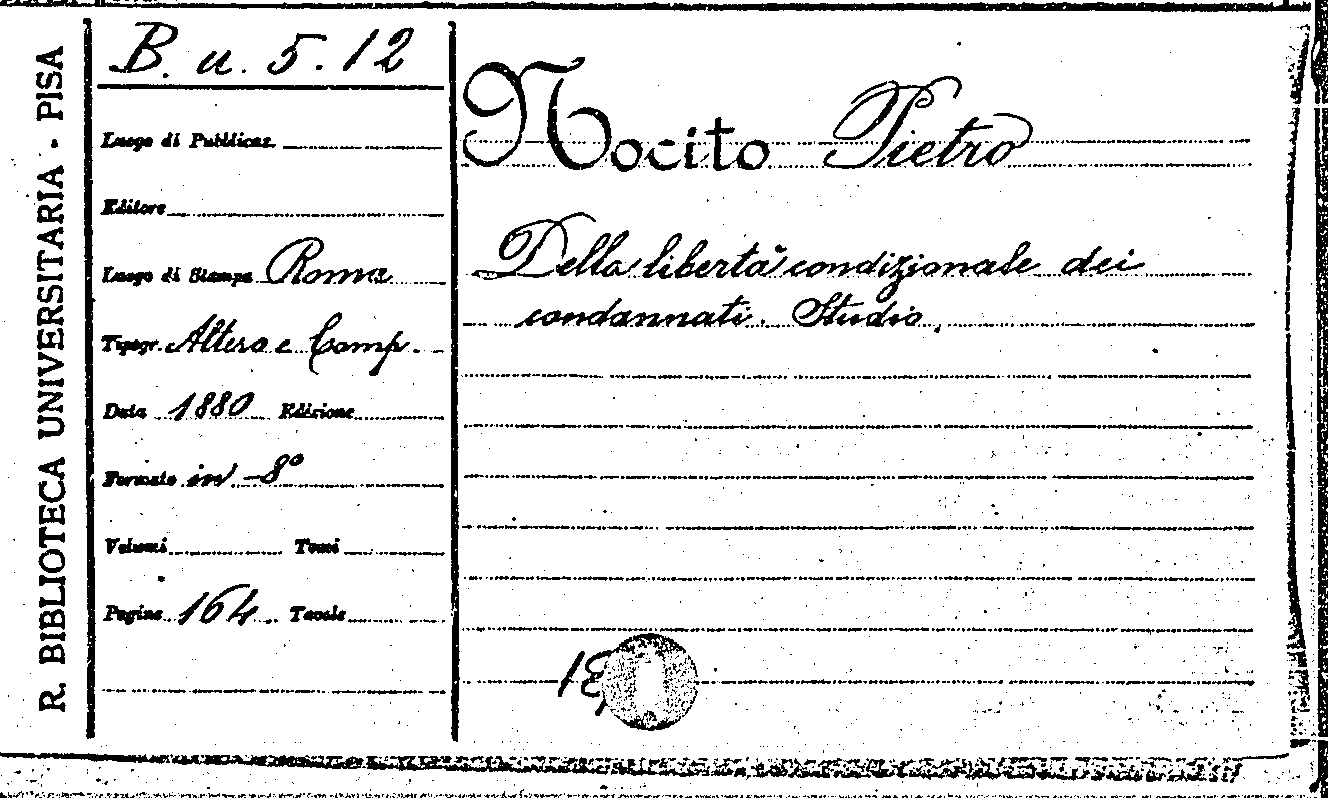 R. BIBLIOTECA UNIVERSITARIA - PISA
B. u. 5. 12
Luogo di Pubblicaz.
Editore
Luogo di Stampa Roma
Tipogr. Altero e Comp.
Data 1880 Edizione
Formato in-8°
Volumi Tomi
Pagine 164 Tavole
Nocito Pietro
Della libertà condizionale dei
condannati. Studio.